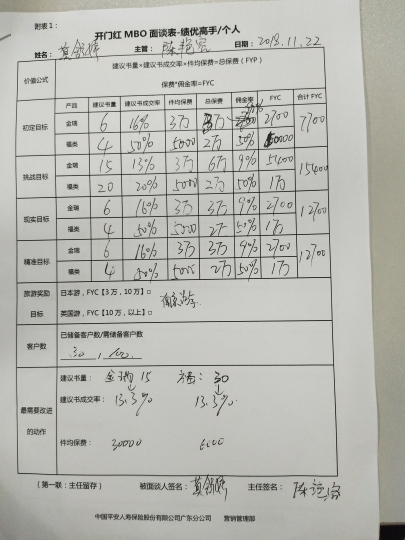 附表1：
开门红 MBO 面谈表-绩优高手/个人
姓名： 主管： 日期：2018.11.22
价值公式 建议书量×建议书成交率×件均保费=总保费（FYP）
保费*佣金率=FYC
产品 建议书量 建议书成交率 件均保费 总保费 佣金率 FYC 合计 FYC
初定目标 金瑞 6 16% 3万 3万 2700 7700
福类 4 50% 5000 2万 50%
挑战目标 金瑞 15 13% 3万 6万 9% 5400 15400
福类 20 20% 5000 2万 50% 1万
现实目标 金瑞 6 16% 3万 3万 9% 2700 12700
福类 4 50% 5000 2万 50% 1万
精准目标 金瑞 6 16% 3万 3万 9% 2700 12700
福类 4 50% 5000 2万 50% 1万
旅游奖励目标 日本游，FYC【3万，10万】□
英国游，FYC【10万，以上】□
客户数 已储备客户数/需储备客户数
30 , 100
最需要改进的动作 建议书量： 金瑞 15 福: 30
建议书成交率： 13.3% 13.3%
件均保费： 30000 6000
（第一联：主任留存） 被面谈人签名： 主任签名：
中国平安人寿保险股份有限公司广东分公司 营销管理部